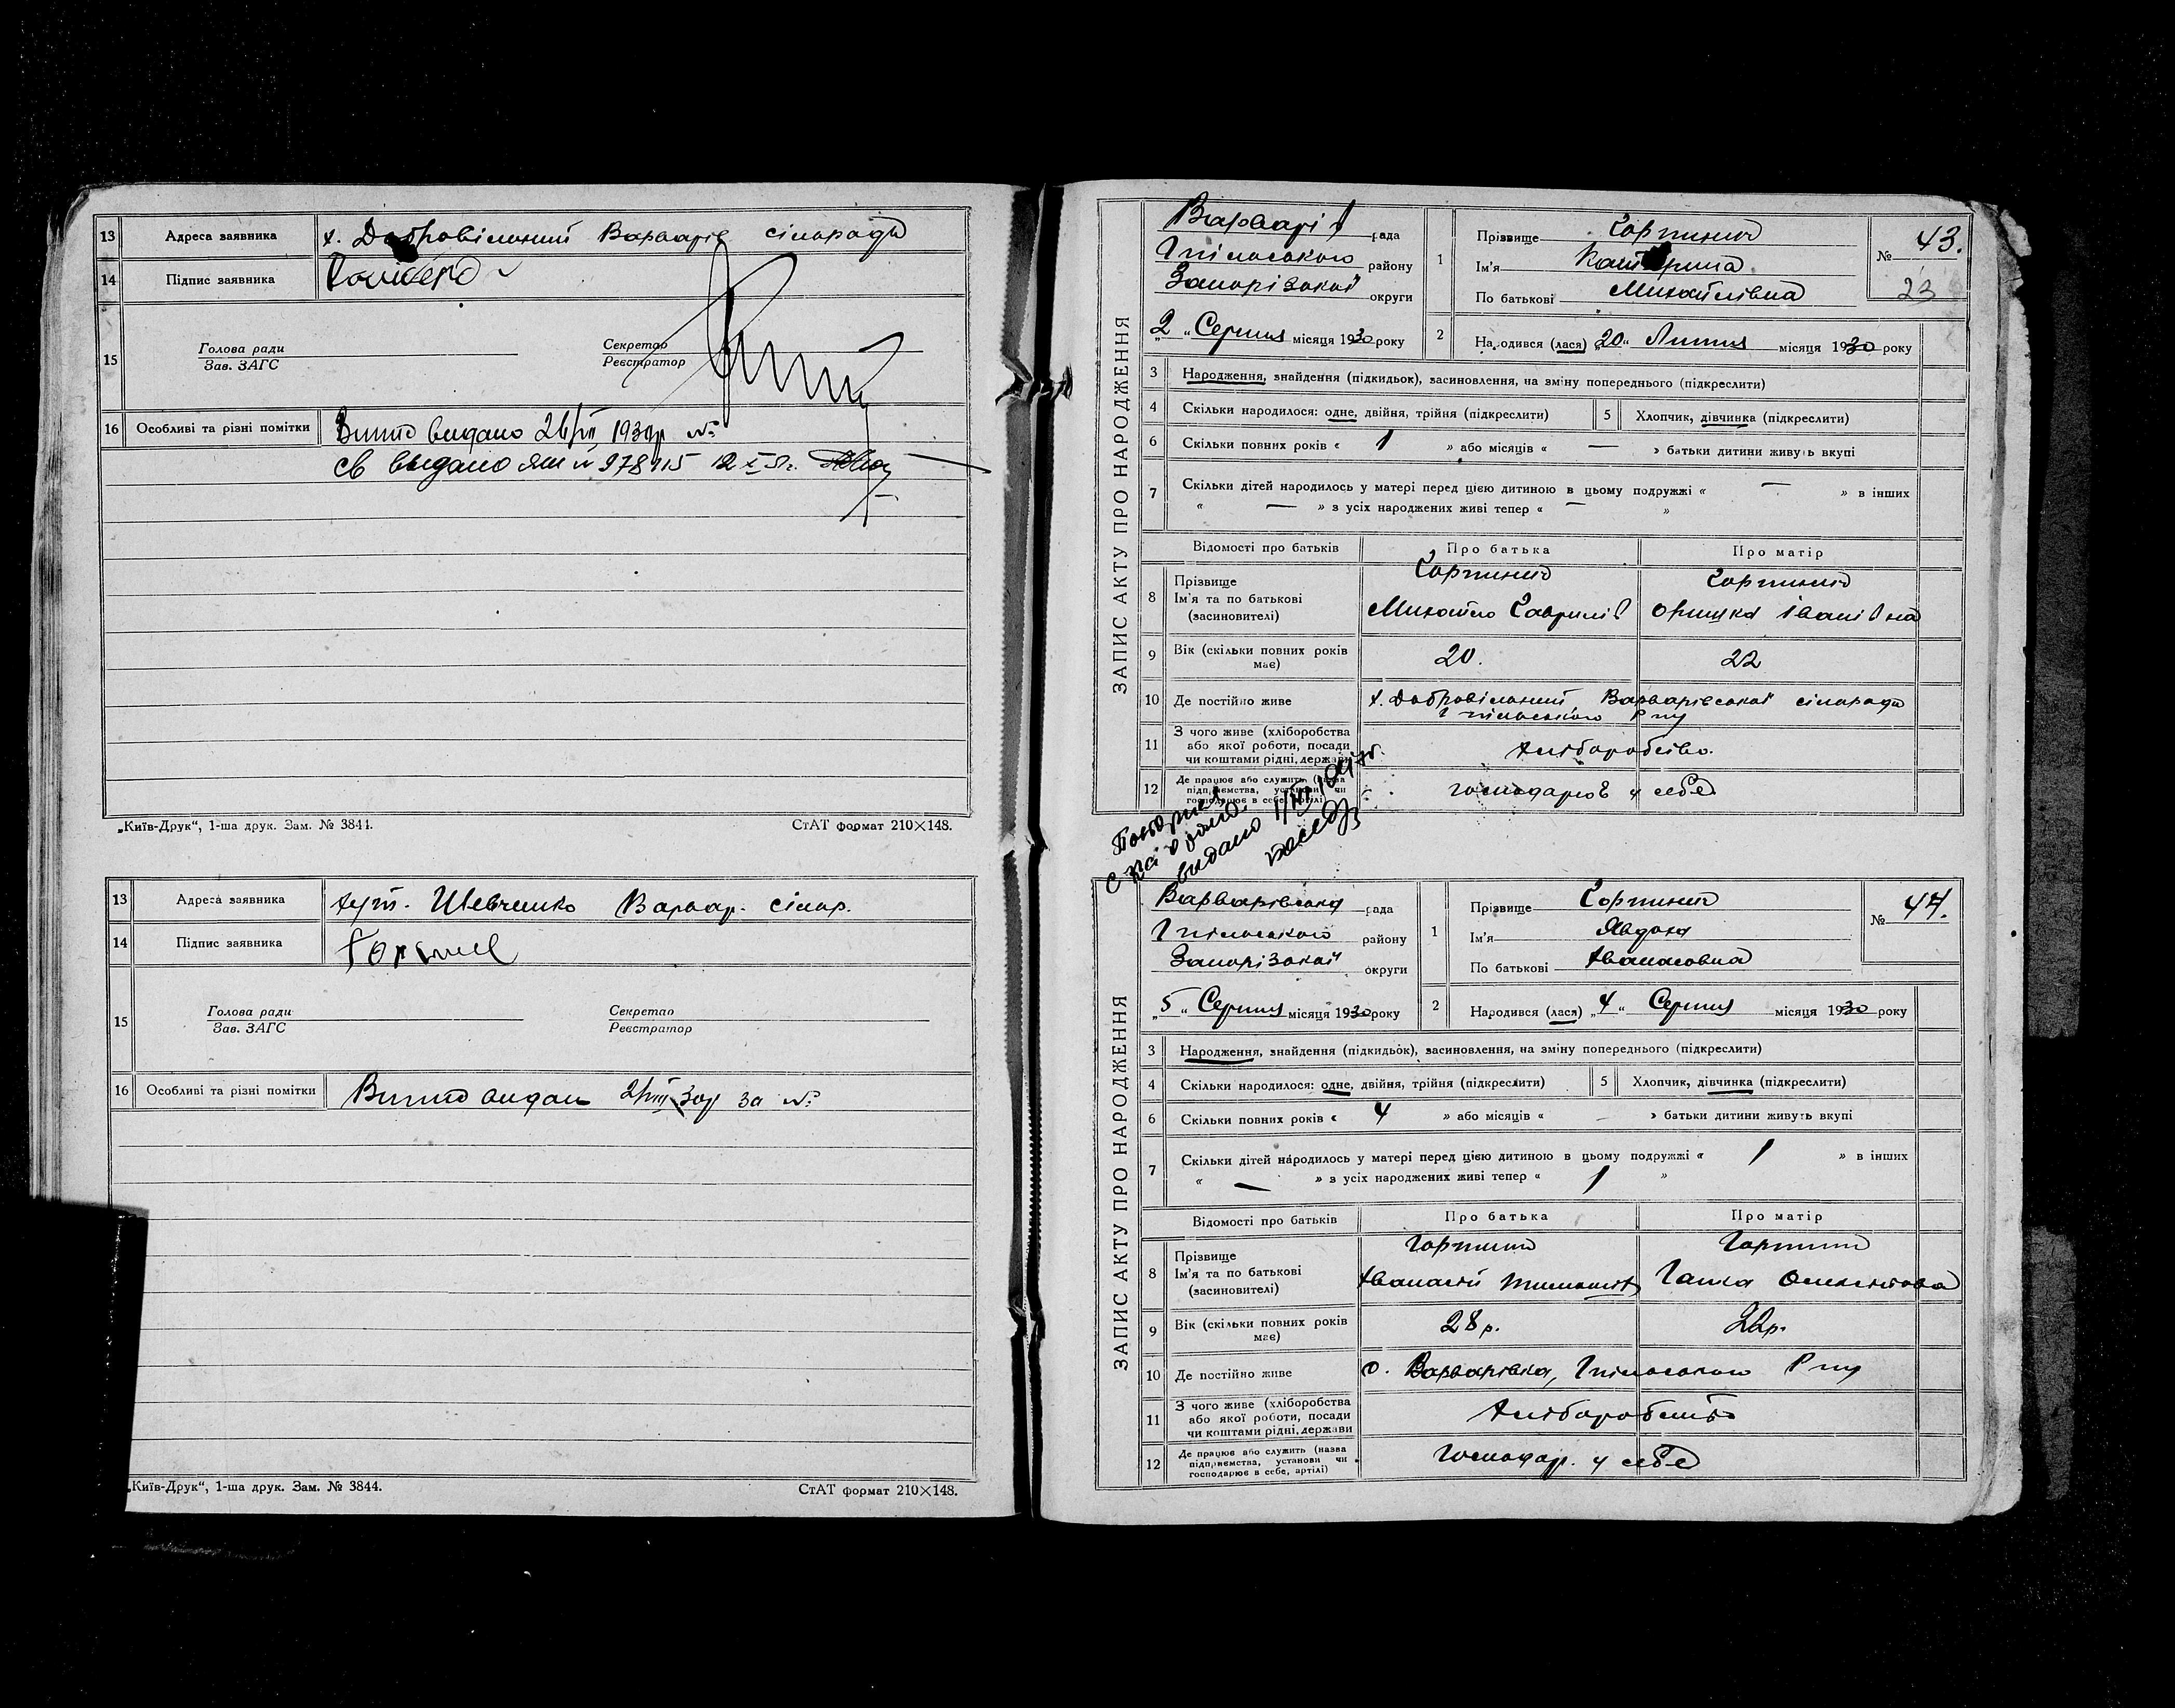 13 Адреса заявника х. Добровільний Варварів. сільради
14 Підпис заявника
15 Голова ради Секретар
Зав. ЗАГС Реєстратор
16 Особливі та різні помітки Витяг видано 26/VII 1930р №
Св выдано ЯШ № 978115 12 X
„Київ-Друк“, 1-ша друк. Зам. № 3844. СтАТ формат 210×148.
13 Адреса заявника хут. Шевченко Варвар. сільр.
14 Підпис заявника
15 Голова ради Секретар
Зав. ЗАГС Реєстратор
16 Особливі та різні помітки Витяг видан 2/VIII 30р за №
„Київ-Друк“, 1-ша друк. Зам. № 3844. СтАТ формат 210×148.
ЗАПИС АКТУ ПРО НАРОДЖЕННЯ
Варварів рада
Гпільського району
Запорізької округи
„2“ Серпня місяця 1930 року
1 Прізвище Горпинич
Ім'я Катерина
По батькові Михайлівна
№ 43.
23
2 Народився (лася) „20“ Липня місяця 1930 року
3 Народження, знайдення (підкидьок), засиновлення, на зміну попереднього (підкреслити)
4 Скільки народилося: одне, двійня, трійня (підкреслити) 5 Хлопчик, дівчинка (підкреслити)
6 Скільки повних років « 1 » або місяців « — » батьки дитини живуть вкупі
7 Скільки дітей народилось у матері перед цією дитиною в цьому подружжі « — » в інших
« — » з усіх народжених живі тепер « — »
Відомості про батьків Про батька Про матір
8 Прізвище Горпинич Горпинич
Ім'я та по батькові Михайло Гаврилів Оришка Іванівна
(засиновителі)
9 Вік (скільки повних років 20. 22
має)
10 Де постійно живе х. Добровільний Варварівської сільради
Гпільського Р-ну
11 З чого живе (хліборобства
або якої роботи, посади хліборобство.
чи коштами рідні, держави
12 Де працює або служить (назва
підприємства, установи чи господарює у себе
господарює в себе, артілі)
Повторне
видано
ЗАПИС АКТУ ПРО НАРОДЖЕННЯ
Варварівська рада
Гпільського району
Запорізької округи
„5“ Серпня місяця 1930 року
1 Прізвище Горпинич
Ім'я Явдоха
По батькові Хванасовна
№ 47.
2 Народився (лася) „4“ Серпня місяця 1930 року
3 Народження, знайдення (підкидьок), засиновлення, на зміну попереднього (підкреслити)
4 Скільки народилося: одне, двійня, трійня (підкреслити) 5 Хлопчик, дівчинка (підкреслити)
6 Скільки повних років « 4 » або місяців « — » батьки дитини живуть вкупі
7 Скільки дітей народилось у матері перед цією дитиною в цьому подружжі « 1 » в інших
« — » з усіх народжених живі тепер « 1 »
Відомості про батьків Про батька Про матір
8 Прізвище Горпинич Горпинич
Ім'я та по батькові Хванасій Ганна
(засиновителі)
9 Вік (скільки повних років 28 р. 22 р.
має)
10 Де постійно живе с. Варварівка, Гпільського Р-ну
11 З чого живе (хліборобства
або якої роботи, посади Хліборобство
чи коштами рідні, держави
12 Де працює або служить (назва
підприємства, установи чи Господар. у себе
господарює в себе, артілі)